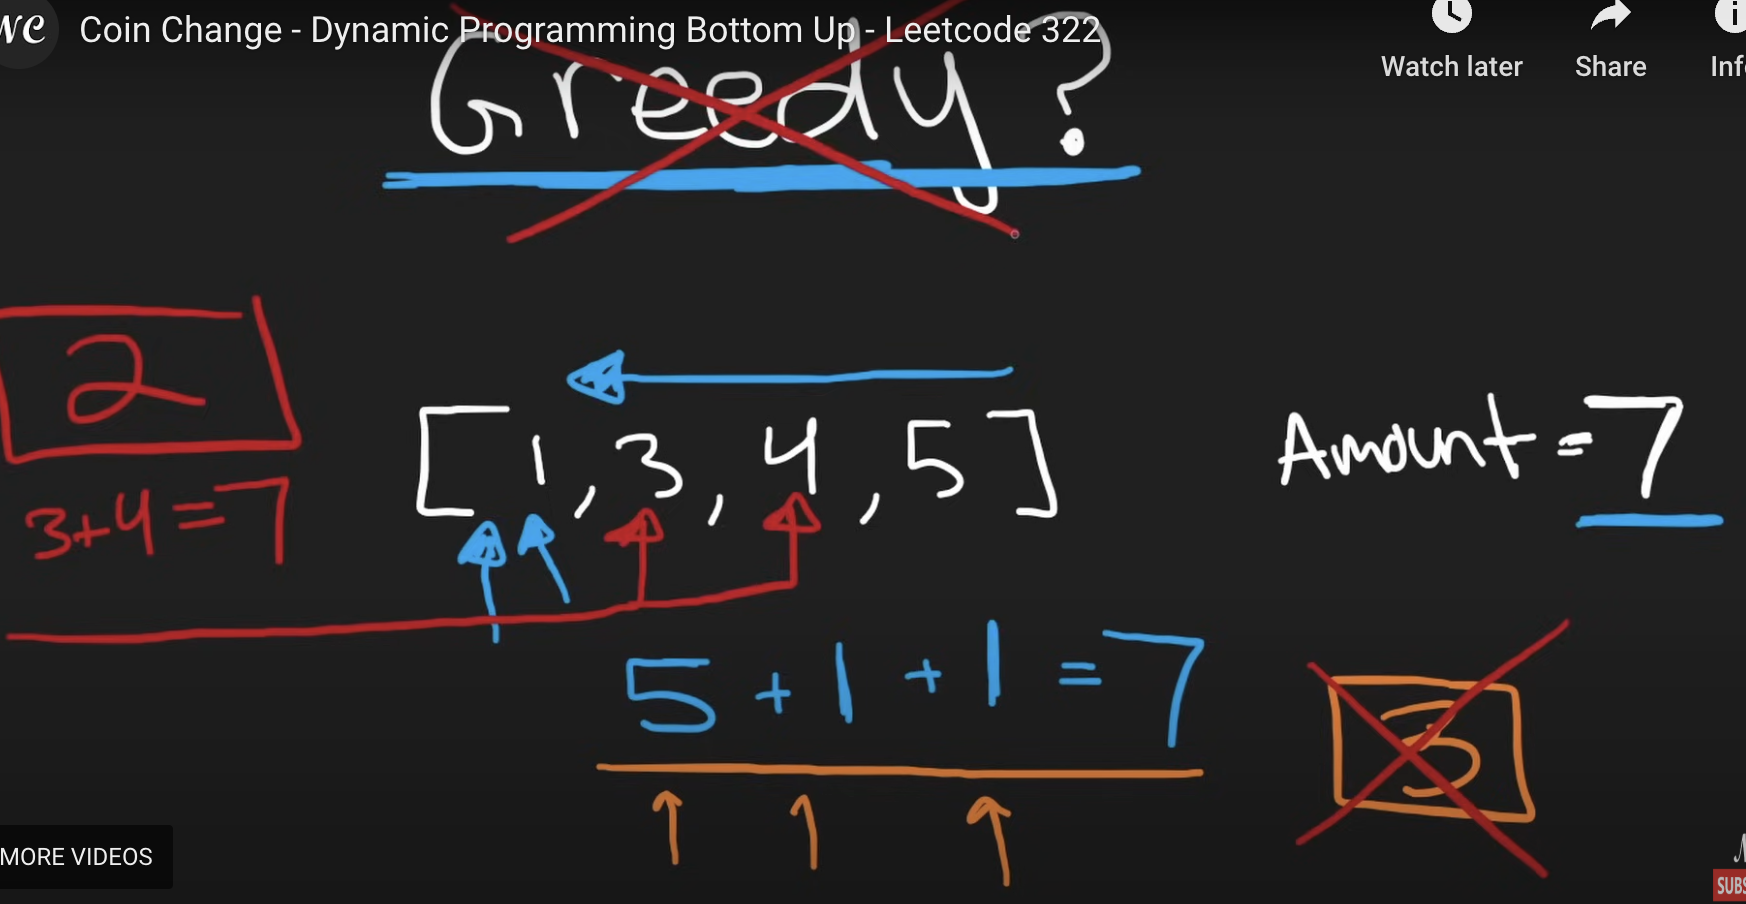 NC Coin Change - Dynamic Programming Bottom Up - Leetcode 322
Watch later Share Inf
Greedy?
2
[1, 3, 4, 5] Amount = 7
3+4=7
5 + 1 + 1 = 7
3
MORE VIDEOS
SUBS